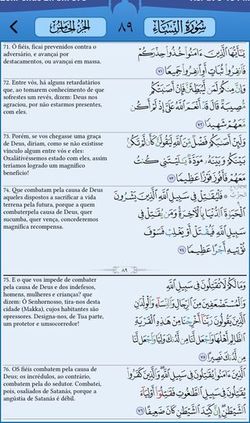 سُورَةُ النِّسَاءِ
٨٩
الجزء الخامس
71. Ó fiéis, ficai prevenidos contra o
adversário, e avançai por
destacamentos, ou avançai em massa.
يَٰٓأَيُّهَا ٱلَّذِينَ ءَامَنُواْ خُذُواْ حِذۡرَكُمۡ
فَٱنفِرُواْ ثُبَاتٍ أَوِ ٱنفِرُواْ جَمِيعٗا ٧١
72. Entre vós, há alguns retardatários
que, ao tomarem conhecimento de que
sofrestes um revés, dizem: Deus nos
agraciou, por não estarmos presentes,
com eles.
وَإِنَّ مِنكُمۡ لَمَن لَّيُبَطِّئَنَّ فَإِنۡ أَصَٰبَتۡكُم
مُّصِيبَةٞ قَالَ قَدۡ أَنۡعَمَ ٱللَّهُ عَلَيَّ إِذۡ لَمۡ أَكُن
مَّعَهُمۡ شَهِيدٗا ٧٢
73. Porém, se vos chegasse uma graça
de Deus, diriam, como se não existisse
vínculo algum entre vós e eles:
Oxalátivéssemos estado com eles, assim
teríamos logrado um magnífico
benefício!
وَلَئِنۡ أَصَٰبَكُمۡ فَضۡلٞ مِّنَ ٱللَّهِ لَيَقُولَنَّ كَأَن لَّمۡ تَكُنۢ
بَيۡنَكُمۡ وَبَيۡنَهُۥ مَوَدَّةٞ يَٰلَيۡتَنِي كُنتُ
مَعَهُمۡ فَأَفُوزَ فَوۡزًا عَظِيمٗا ٧٣
74. Que combatam pela causa de Deus
aqueles dispostos a sacrificar a vida
terrena pela futura, porque a quem
combaterpela causa de Deus, quer
sucumba, quer vença, concederemos
magnífica recompensa.
۞ فَلۡيُقَٰتِلۡ فِي سَبِيلِ ٱللَّهِ ٱلَّذِينَ يَشۡرُونَ
ٱلۡحَيَوٰةَ ٱلدُّنۡيَا بِٱلۡأٓخِرَةِۚ وَمَن يُقَٰتِلۡ فِي
سَبِيلِ ٱللَّهِ فَيُقۡتَلۡ أَوۡ يَغۡلِبۡ فَسَوۡفَ
نُؤۡتِيهِ أَجۡرًا عَظِيمٗا ٧٤
٨٩
75. E o que vos impede de combater
pela causa de Deus e dos indefesos,
homens, mulheres e crianças? que
dizem: Ó Senhornosso, tira-nos desta
cidade (Makka), cujos habitantes são
opressores. Designa-nos, de Tua parte,
um protetor e umsocorredor!
وَمَا لَكُمۡ لَا تُقَٰتِلُونَ فِي سَبِيلِ ٱللَّهِ
وَٱلۡمُسۡتَضۡعَفِينَ مِنَ ٱلرِّجَالِ وَٱلنِّسَآءِ وَٱلۡوِلۡدَٰنِ
ٱلَّذِينَ يَقُولُونَ رَبَّنَآ أَخۡرِجۡنَا مِنۡ هَٰذِهِ ٱلۡقَرۡيَةِ
ٱلظَّالِمِ أَهۡلُهَا وَٱجۡعَل لَّنَا مِن لَّدُنكَ وَلِيّٗا وَٱجۡعَل لَّنَا
مِن لَّدُنكَ نَصِيرًا ٧٥
76. OS fiéis combatem pela causa de
Deus; os incrédulos, ao contrário,
combatem pela do sedutor. Combatei,
pois, osaliados de Satanás, porque a
angústia de Satanás é débil.
ٱلَّذِينَ ءَامَنُواْ يُقَٰتِلُونَ فِي سَبِيلِ ٱللَّهِۖ وَٱلَّذِينَ كَفَرُواْ
يُقَٰتِلُونَ فِي سَبِيلِ ٱلطَّٰغُوتِ فَقَٰتِلُوٓاْ أَوۡلِيَآءَ
ٱلشَّيۡطَٰنِۖ إِنَّ كَيۡدَ ٱلشَّيۡطَٰنِ كَانَ ضَعِيفًا ٧٦